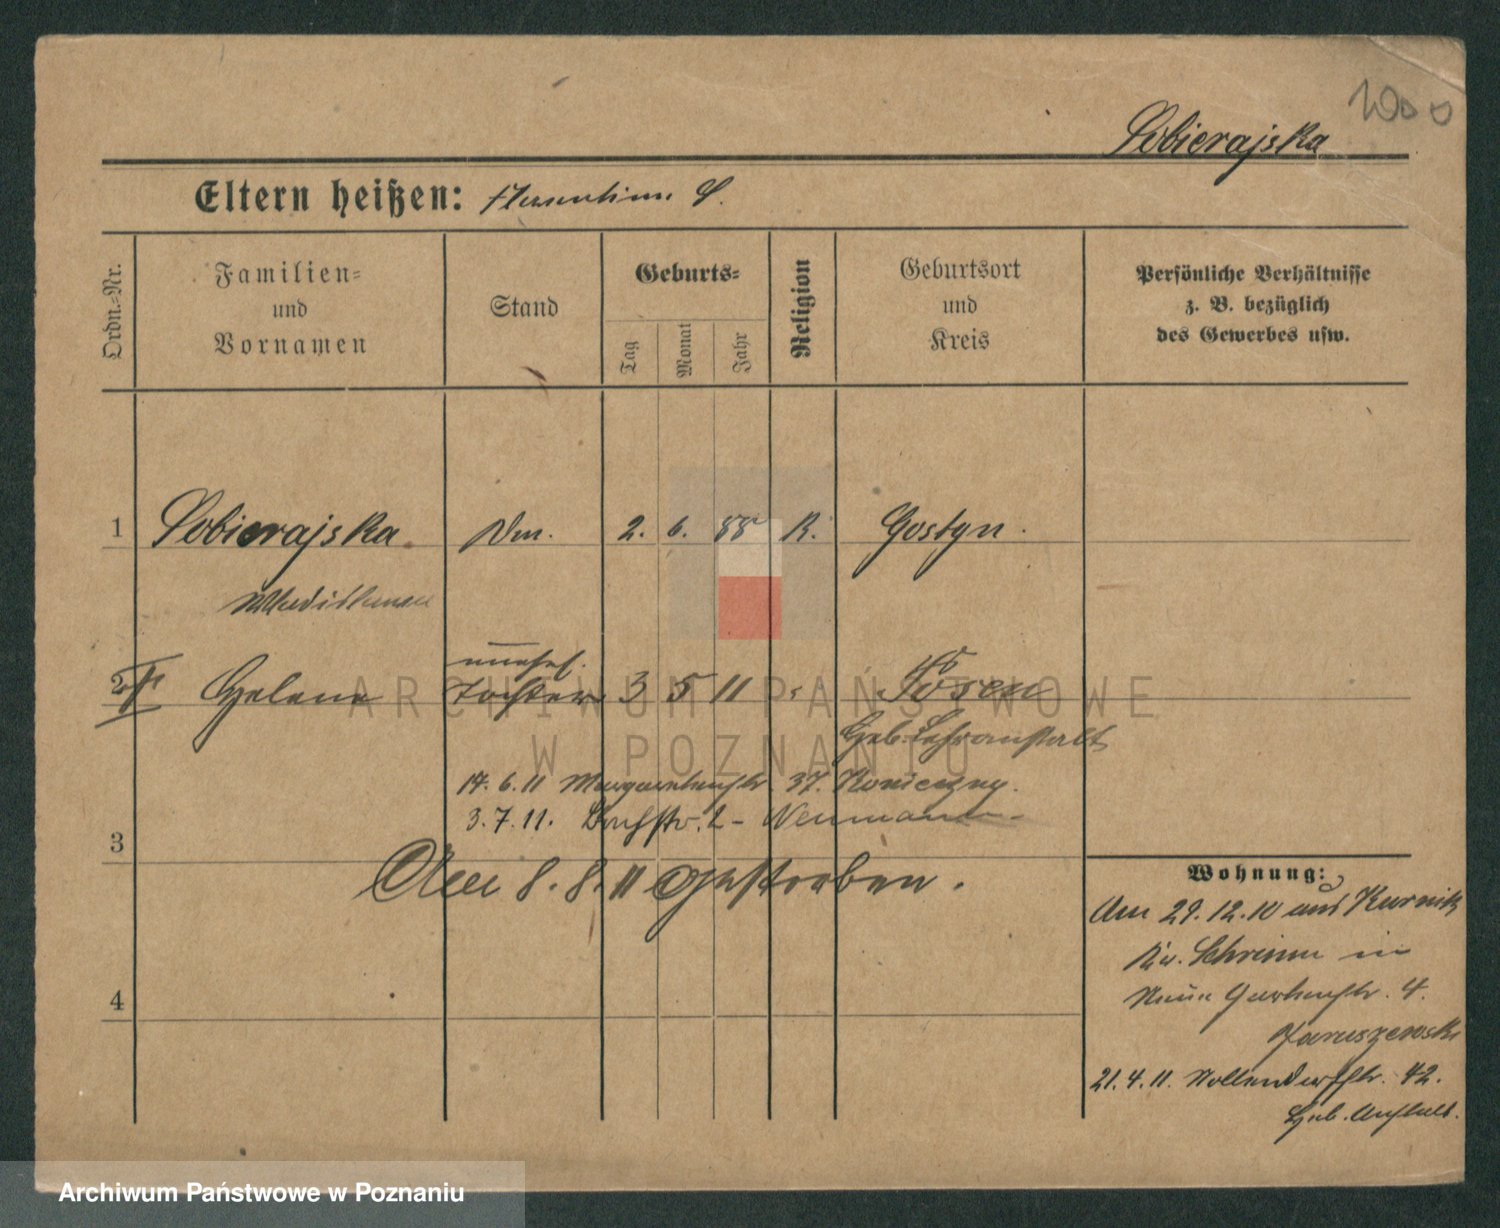 Sobierajska
Eltern heißen: S.
Ordn.=Nr.
Familien=
und
Vornamen
Stand
Geburts=
Tag
Monat
Jahr
Religion
Geburtsort
und
Kreis
Persönliche Verhältnisse
z. B. bezüglich
des Gewerbes usw.
1 Sobierajska Dm. 2. 6. 88 K. Gostyn.
unehel.
2 Helene Tochter 3 5 11 Posen
Geb. Lehranstalt
17. 6. 11 Margarethenstr. 37. Konieczny.
3. 7. 11. 2 - Neumann
3
Am 8. 8. 11 gestorben.
Wohnung:
Am 29. 12. 10 aus Kurnik
Kr. Schrimm in
Neue Gartenstr. 4.
Jaruszewski
21. 4. 11. Nollendorfstr. 42.
Heb. Anstalt.
4
ARCHIWUM PAŃSTWOWE
W POZNANIU
Archiwum Państwowe w Poznaniu